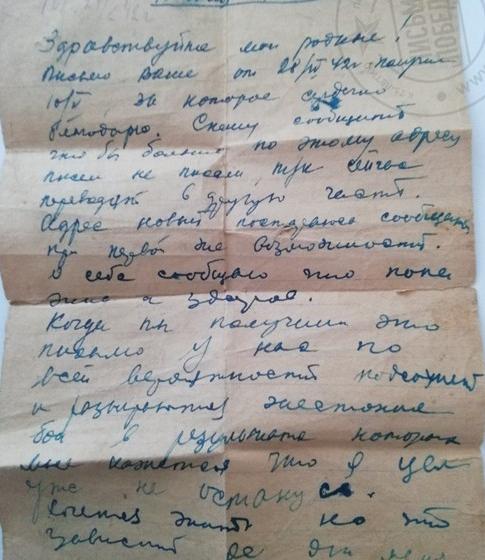 Здравствуйте мои родные!
Письмо ваше от 28/IV 42г получил
10/V, за которое сердечно
благодарю. Спешу сообщить
что бы больше по этому адресу
писем не писали, т.к. сейчас
переводят в другую часть.
Адрес новый постараюсь сообщить
при первой же возможности.
О себе сообщаю что пока
жив и здоров.
Когда вы получите это
письмо у нас по
всей вероятности
и разыграются жестокие
бои в результате которых
мне кажется что я цел
уже не останусь.
жить но это
зависит не
ПИСЬМА
ПОБЕДЫ
www.